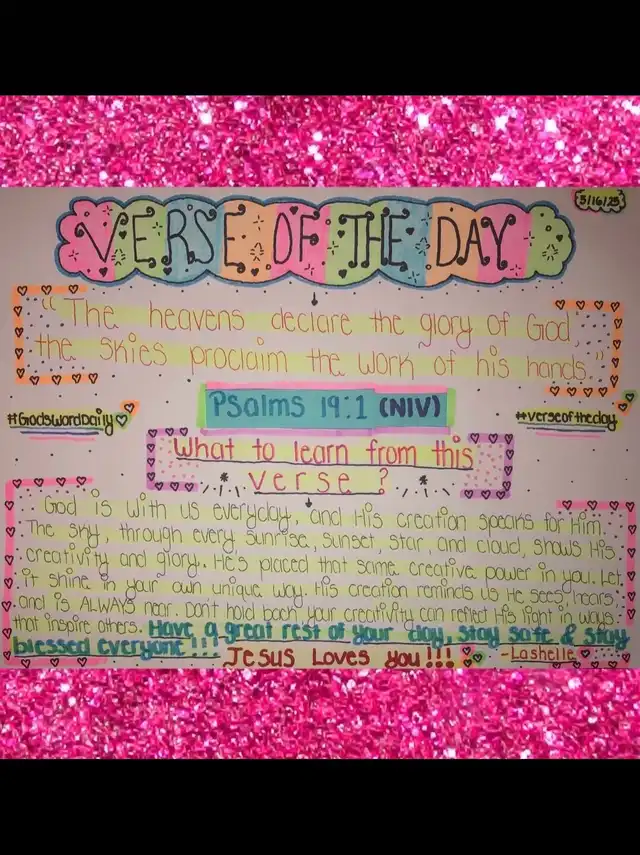 5/16/25
VERSE OF THE DAY
"The heavens declare the glory of God,
the skies proclaim the work of his hands."
Psalms 19:1 (NIV)
#GodsWordDaily
#verseoftheday
What to learn from this
verse?
God is with us everyday, and His creation speaks for Him.
The sky, through every sunrise, sunset, star, and cloud, shows His
creativity and glory. He's placed that same creative power in you. Let
it shine in your own unique way. His creation reminds us He sees, hears,
and is ALWAYS near. Don't hold back your creativity can reflect His light in ways
that inspire others. Have a great rest of your day, stay safe & stay
blessed everyone!!! Jesus Loves you!!! -Lashelle